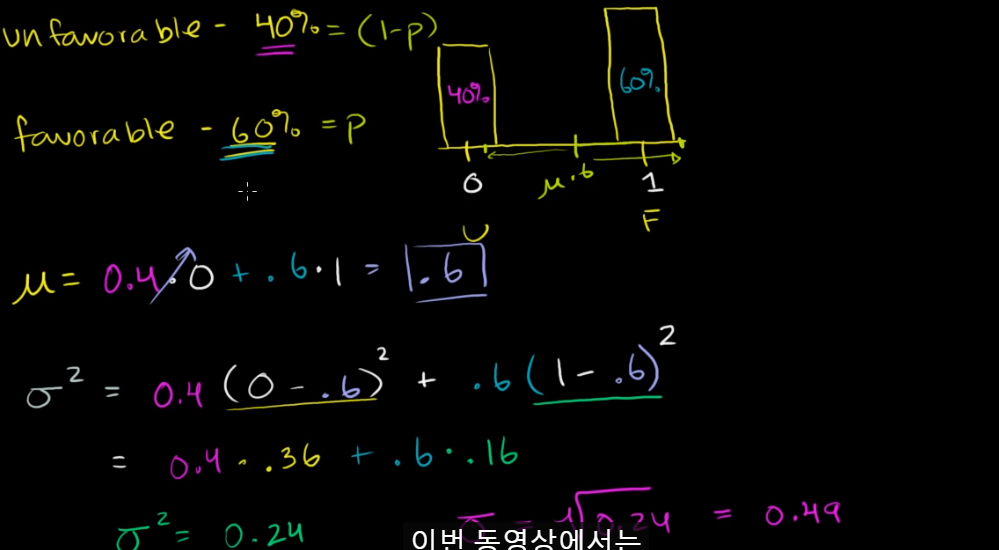 unfavorable - 40% = (1-p)
40%
60%
favorable - 60% = p
0
μ.6
1
U
F
μ = 0.4·0 + .6·1 = .6
σ² = 0.4 (0 - .6)² + .6 (1 - .6)²
= 0.4 · .36 + .6 · .16
σ² = 0.24
σ = √0.24 = 0.49
이번 동영상에서는